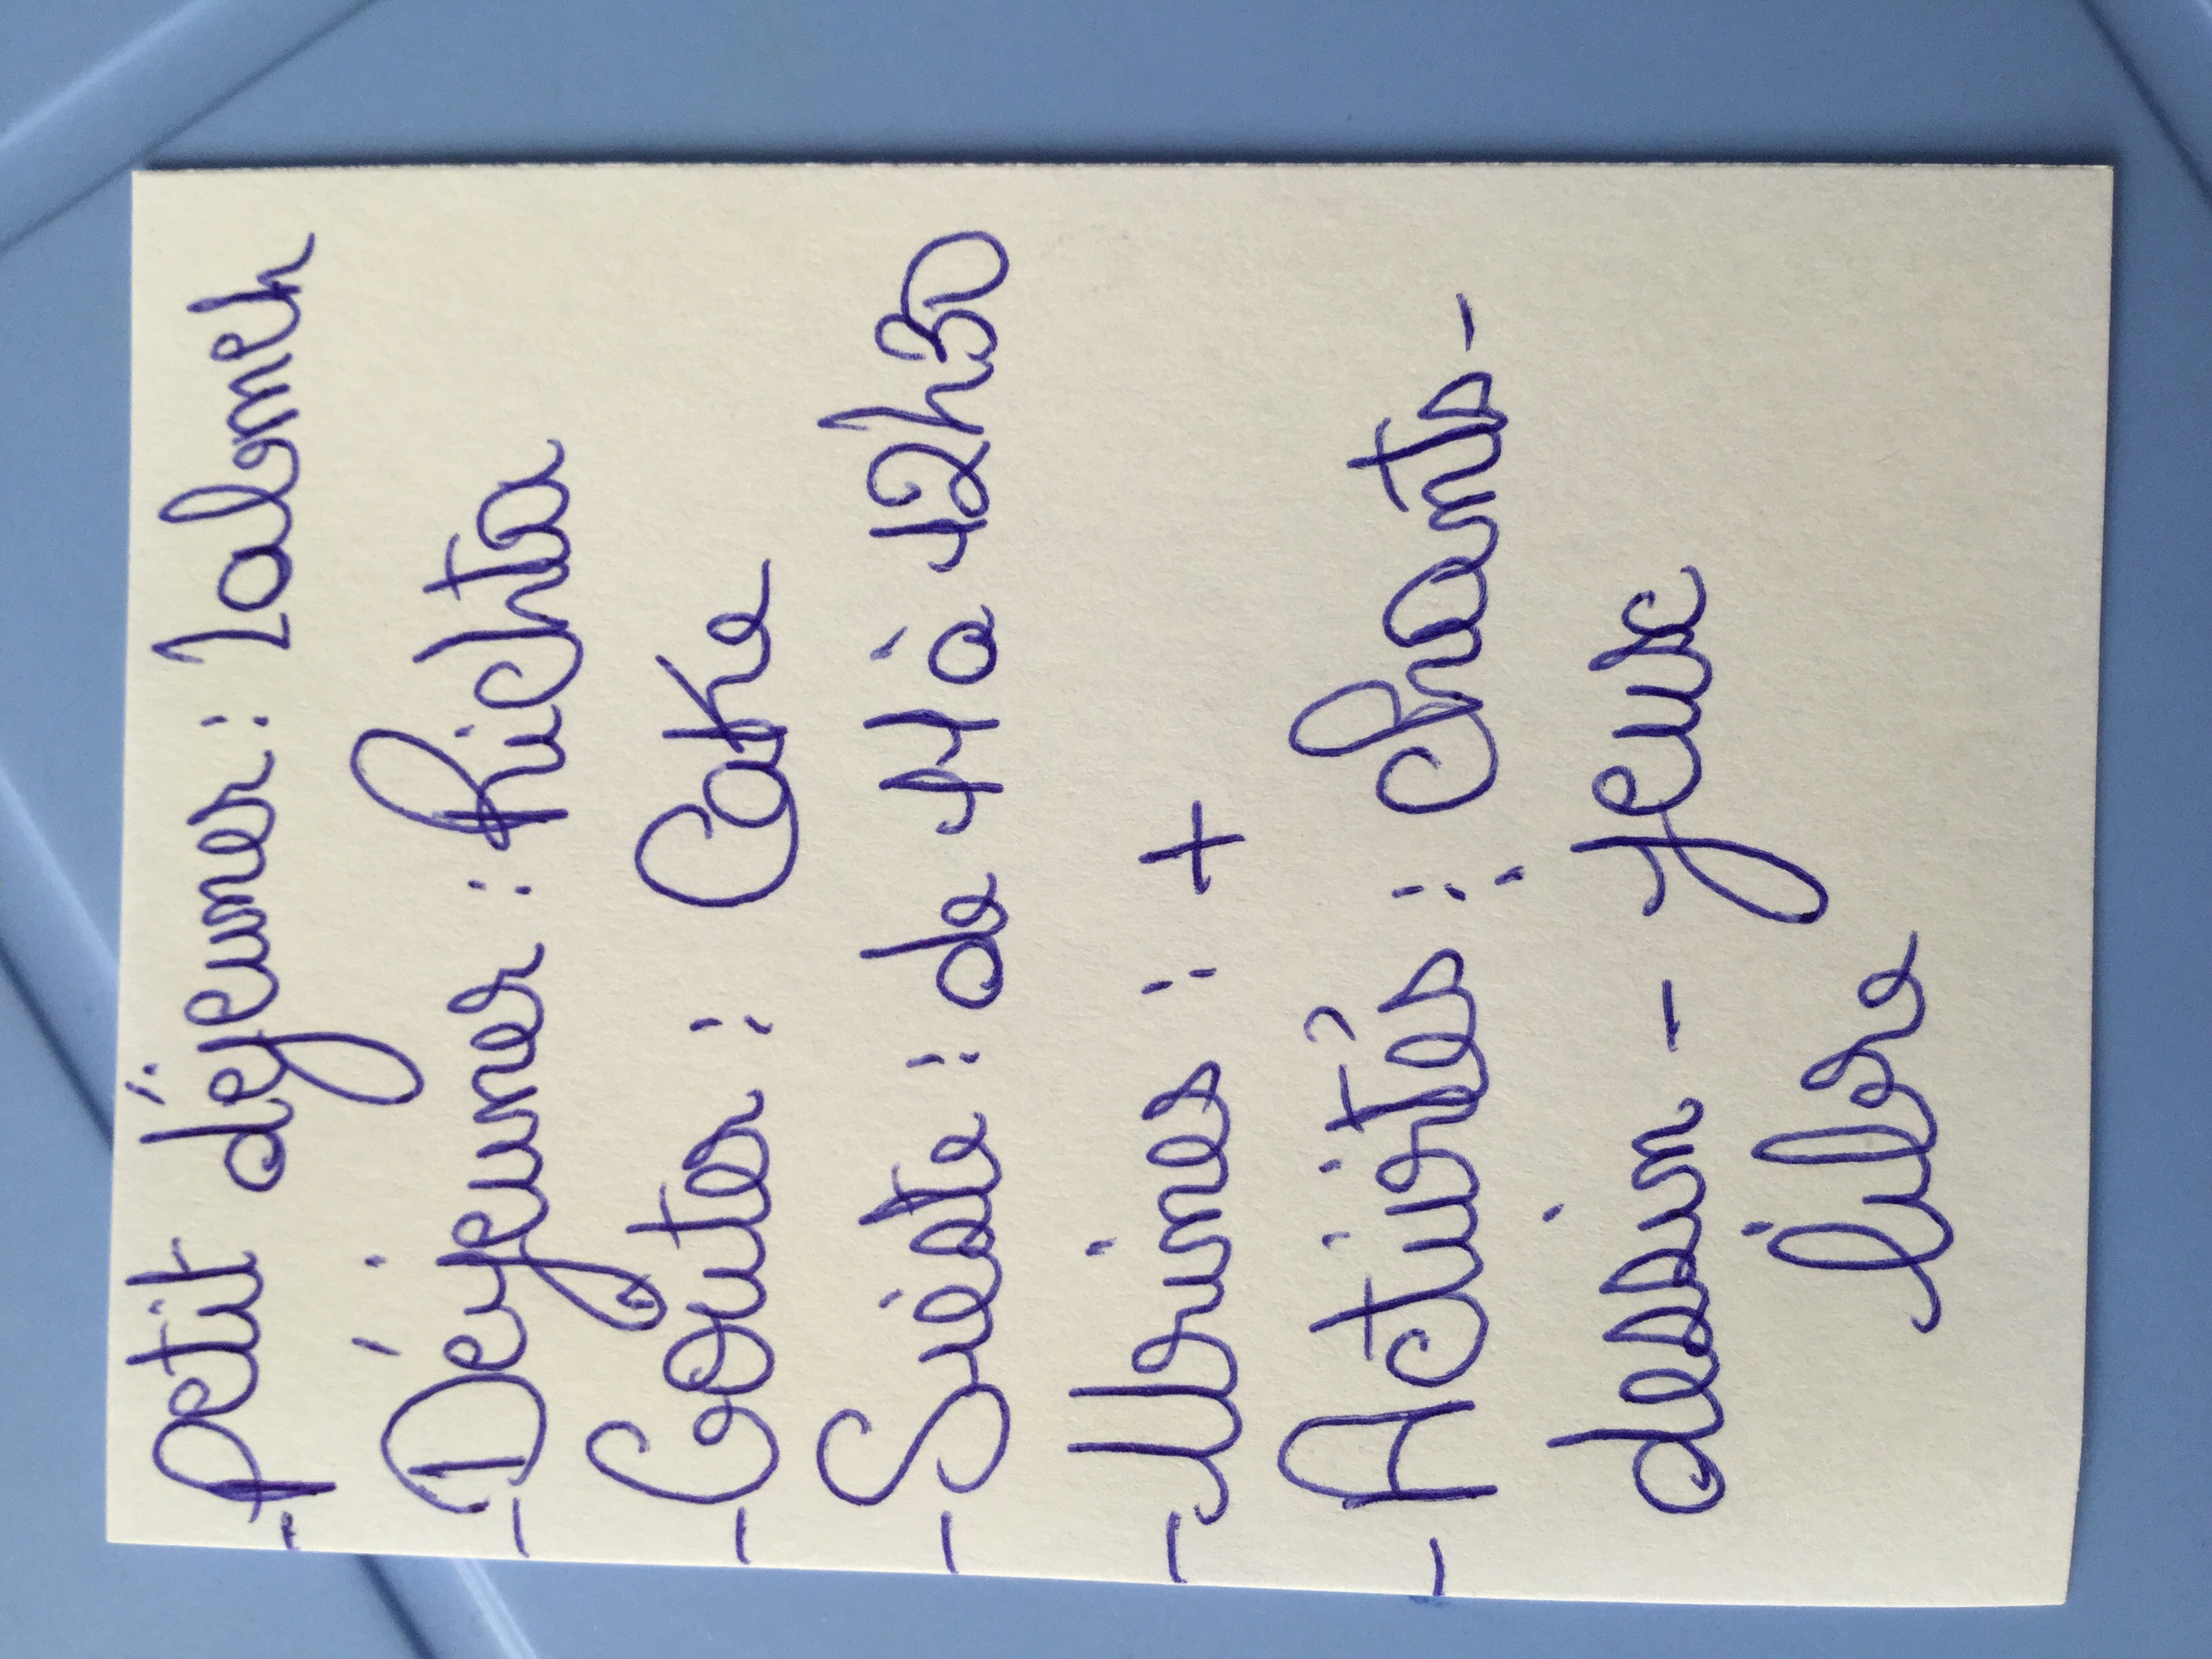 -Petit déjeuner : Labmeh
-Déjeuner : Richta
-Goûter : Cake
-Siéste : de 11 à 12h30
-Urines : +
-Activités : chants-
dessin - jeux
libre